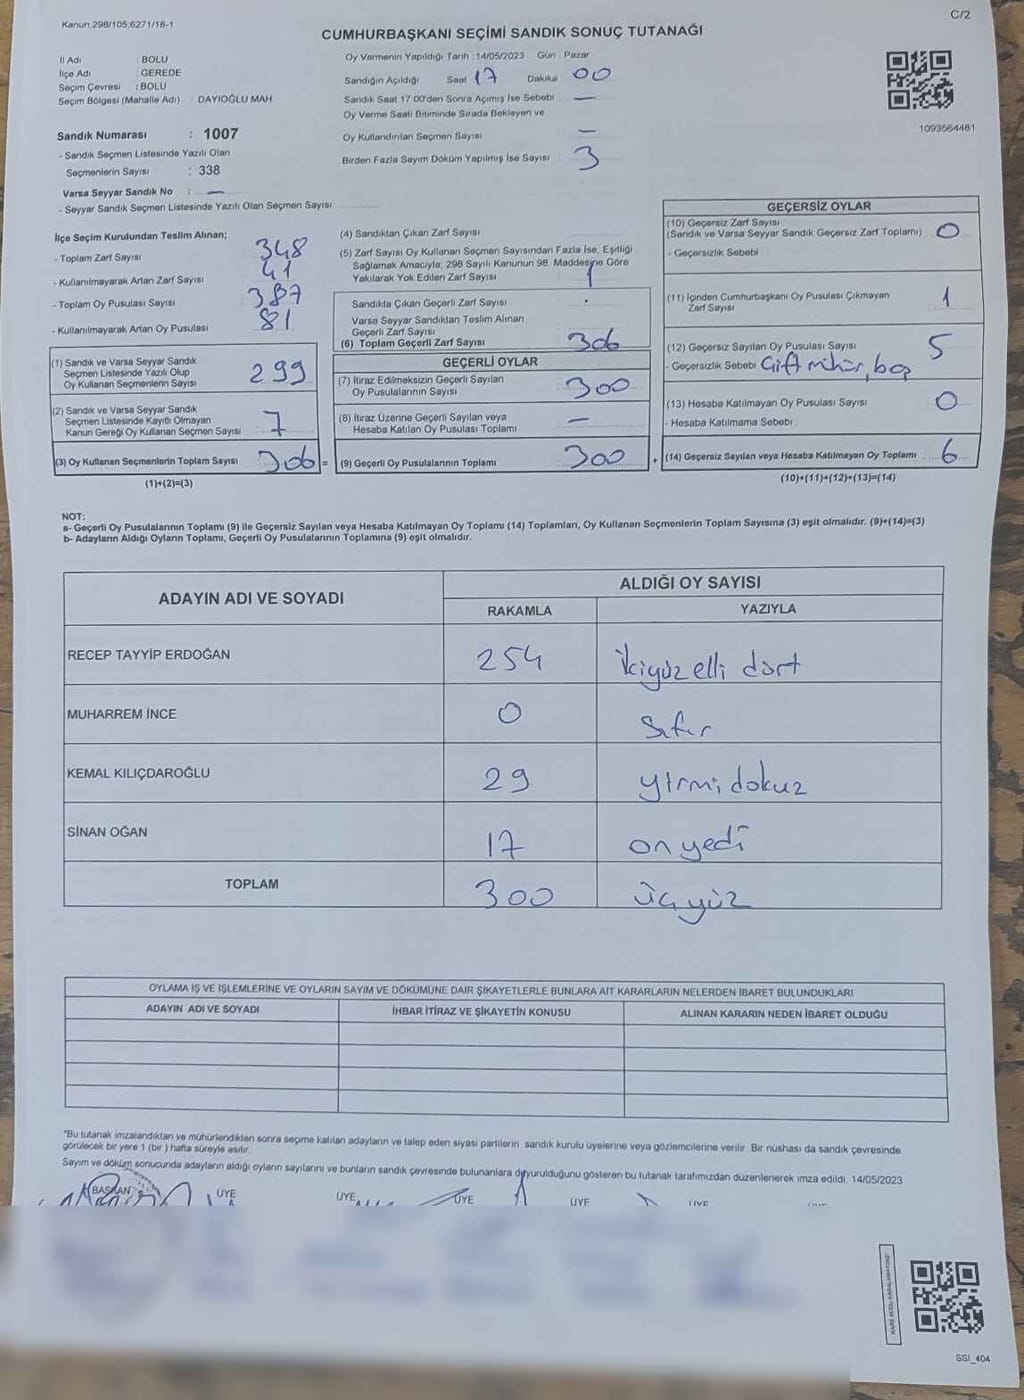 Kanun:298/105;6271/18-1
C/2
CUMHURBAŞKANI SEÇİMİ SANDIK SONUÇ TUTANAĞI
İl Adı : BOLU
İlçe Adı : GEREDE
Seçim Çevresi : BOLU
Seçim Bölgesi (Mahalle Adı) : DAYIOĞLU MAH
Oy Vermenin Yapıldığı Tarih : 14/05/2023 Gün : Pazar
Sandığın Açıldığı Saat 17 Dakika 00
Sandık Saat 17 00'den Sonra Açımış İse Sebebi —
Oy Verme Saati Bitiminde Sırada Bekleyen ve
Oy Kullandırılan Seçmen Sayısı —
Birden Fazla Sayım Döküm Yapılmış İse Sayısı 3
1093564461
Sandık Numarası : 1007
- Sandık Seçmen Listesinde Yazılı Olan
Seçmenlerin Sayısı : 338
Varsa Seyyar Sandık No : —
- Seyyar Sandık Seçmen Listesinde Yazılı Olan Seçmen Sayısı
İlçe Seçim Kurulundan Teslim Alınan;
- Toplam Zarf Sayısı 348
- Kullanılmayarak Artan Zarf Sayısı 41
- Toplam Oy Pusulası Sayısı 387
- Kullanılmayarak Artan Oy Pusulası 81
(1) Sandık ve Varsa Seyyar Sandık
Seçmen Listesinde Yazılı Olup
Oy Kullanan Seçmenlerin Sayısı 299
(2) Sandık ve Varsa Seyyar Sandık
Seçmen Listesinde Kayıtlı Olmayan
Kanun Gereği Oy Kullanan Seçmen Sayısı 7
(3) Oy Kullanan Seçmenlerin Toplam Sayısı 306 =
(1)+(2)=(3)
(4) Sandıktan Çıkan Zarf Sayısı
(5) Zarf Sayısı Oy Kullanan Seçmen Sayısından Fazla İse, Eşitliği
Sağlamak Amacıyla, 298 Sayılı Kanunun 98. Maddesine Göre
Yakılarak Yok Edilen Zarf Sayısı 1
Sandıkta Çıkan Geçerli Zarf Sayısı
Varsa Seyyar Sandıktan Teslim Alınan
Geçerli Zarf Sayısı
(6) Toplam Geçerli Zarf Sayısı 306
GEÇERLİ OYLAR
(7) İtiraz Edilmeksizin Geçerli Sayılan
Oy Pusulalarının Sayısı 300
(8) İtiraz Üzerine Geçerli Sayılan veya
Hesaba Katılan Oy Pusulası Toplamı —
(9) Geçerli Oy Pusulalarının Toplamı 300 +
GEÇERSİZ OYLAR
(10) Geçersiz Zarf Sayısı
(Sandık ve Varsa Seyyar Sandık Geçersiz Zarf Toplamı) 0
- Geçersizlik Sebebi
(11) İçinden Cumhurbaşkanı Oy Pusulası Çıkmayan
Zarf Sayısı 1
(12) Geçersiz Sayılan Oy Pusulası Sayısı 5
- Geçersizlik Sebebi Çift mühür, boş
(13) Hesaba Katılmayan Oy Pusulası Sayısı 0
- Hesaba Katılmama Sebebi
(14) Geçersiz Sayılan veya Hesaba Katılmayan Oy Toplamı 6
(10)+(11)+(12)+(13)=(14)
NOT:
a- Geçerli Oy Pusulalarının Toplamı (9) ile Geçersiz Sayılan veya Hesaba Katılmayan Oy Toplamı (14) Toplamları, Oy Kullanan Seçmenlerin Toplam Sayısına (3) eşit olmalıdır. (9)+(14)=(3)
b- Adayların Aldığı Oyların Toplamı, Geçerli Oy Pusulalarının Toplamına (9) eşit olmalıdır.
ADAYIN ADI VE SOYADI
ALDIĞI OY SAYISI
RAKAMLA YAZIYLA
RECEP TAYYİP ERDOĞAN 254 ikiyüz elli dört
MUHARREM İNCE 0 Sıfır
KEMAL KILIÇDAROĞLU 29 yirmi dokuz
SİNAN OĞAN 17 on yedi
TOPLAM 300 üçyüz
OYLAMA İŞ VE İŞLEMLERİNE VE OYLARIN SAYIM VE DÖKÜMÜNE DAİR ŞİKAYETLERLE BUNLARA AİT KARARLARIN NELERDEN İBARET BULUNDUKLARI
ADAYIN ADI VE SOYADI İHBAR İTİRAZ VE ŞİKAYETİN KONUSU ALINAN KARARIN NEDEN İBARET OLDUĞU
"Bu tutanak imzalandıktan ve mühürlendikten sonra seçime katılan adayların ve talep eden siyasi partilerin sandık kurulu üyelerine veya gözlemcilerine verilir. Bir nüshası da sandık çevresinde
görülecek bir yere 1 (bir) hafta süreyle asılır.
Sayım ve döküm sonucunda adayların aldığı oyların sayılarını ve bunların sandık çevresinde bulunanlara duyurulduğunu gösteren bu tutanak tarafımızdan düzenlenerek imza edildi. 14/05/2023
BAŞKAN ÜYE ÜYE ÜYE ÜYE ÜYE
KARE KODU KARALAMAYINIZ
SSI_404